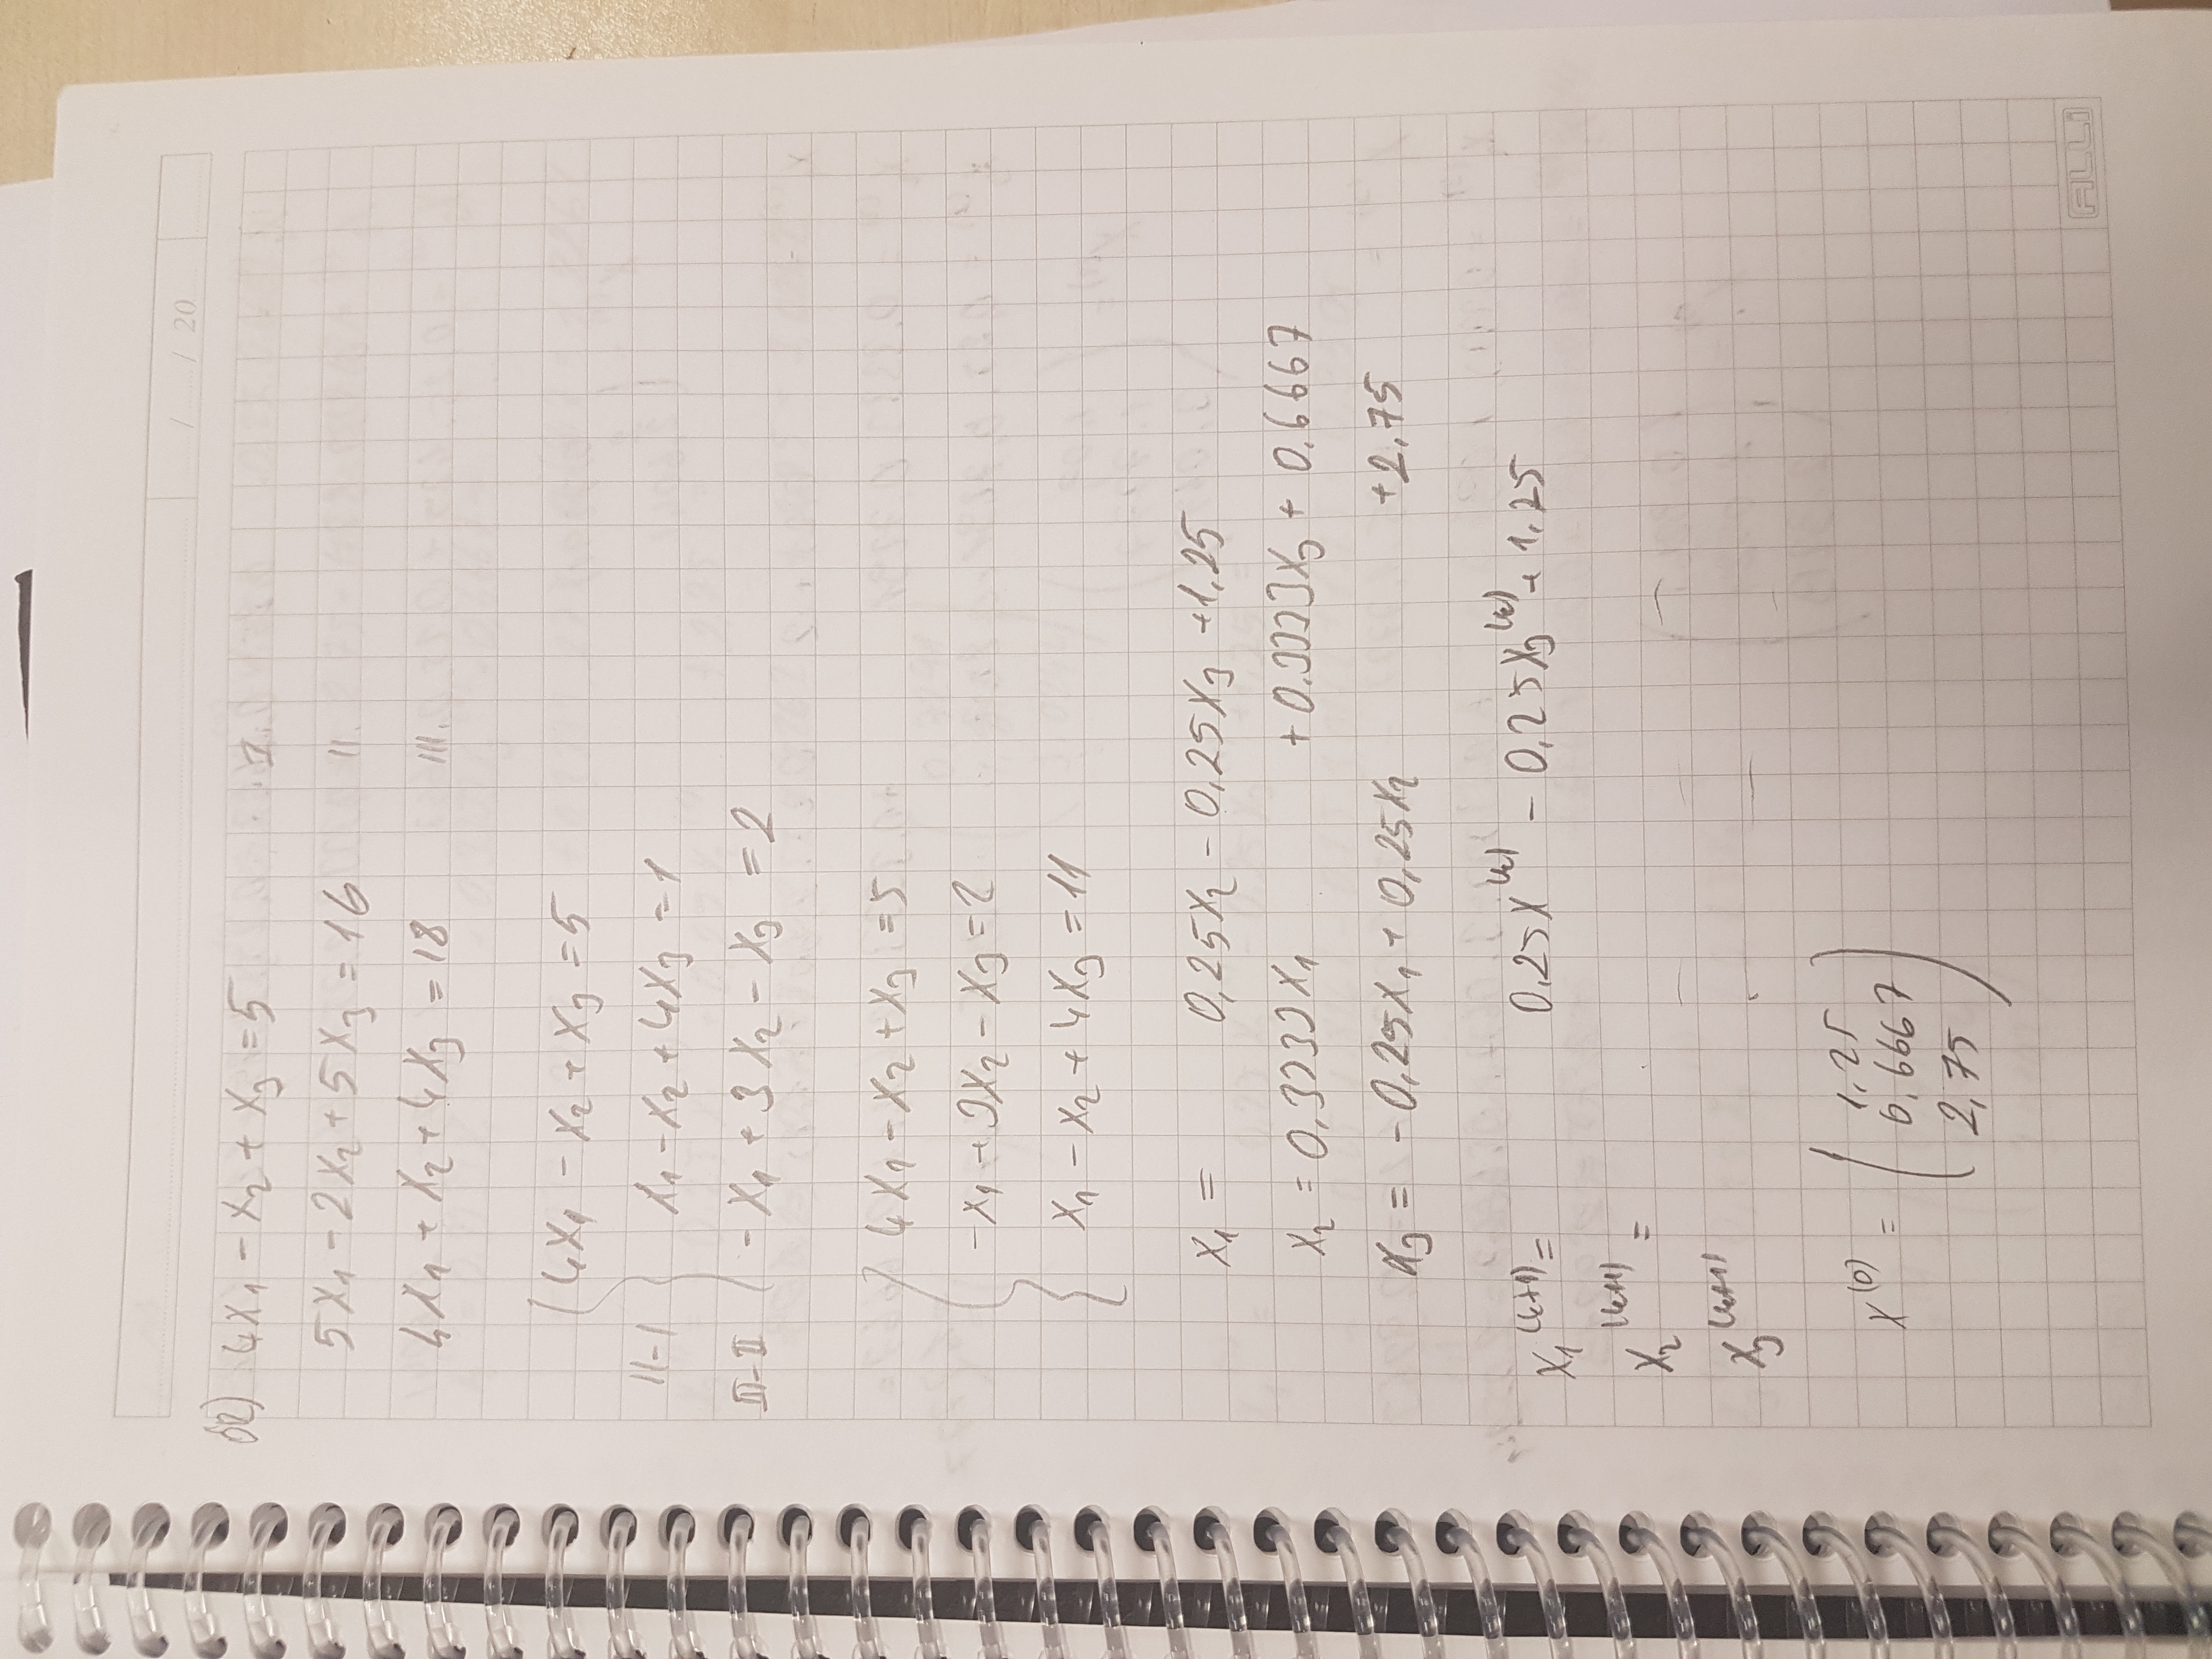 / / 20
62) 4x₁ - x₂ + x₃ = 5 I.
5x₁ - 2x₂ + 5x₃ = 16 II.
4x₁ + x₂ + 4x₃ = 18 III.
4x₁ - x₂ + x₃ = 5
II-I x₁ - x₂ + 4x₃ = 1
III-II -x₁ + 3x₂ - x₃ = 2
4x₁ - x₂ + x₃ = 5
-x₁ + 3x₂ - x₃ = 2
x₁ - x₂ + 4x₃ = 11
x₁ = 0,25x₂ - 0,25x₃ + 1,25
x₂ = 0,3333x₁ + 0.3333x₃ + 0,6667
x₃ = -0,25x₁ + 0,25x₂ + 2,75
x₁⁽ᵏ⁺¹⁾ = 0,25x⁽ᵏ⁾ - 0,25x₃⁽ᵏ⁾ + 1,25
x₂⁽ᵏ⁺¹⁾ =
x₃⁽ᵏ⁺¹⁾
x⁽⁰⁾ = ( 1,25
0,6667
2,75 )
ALLi